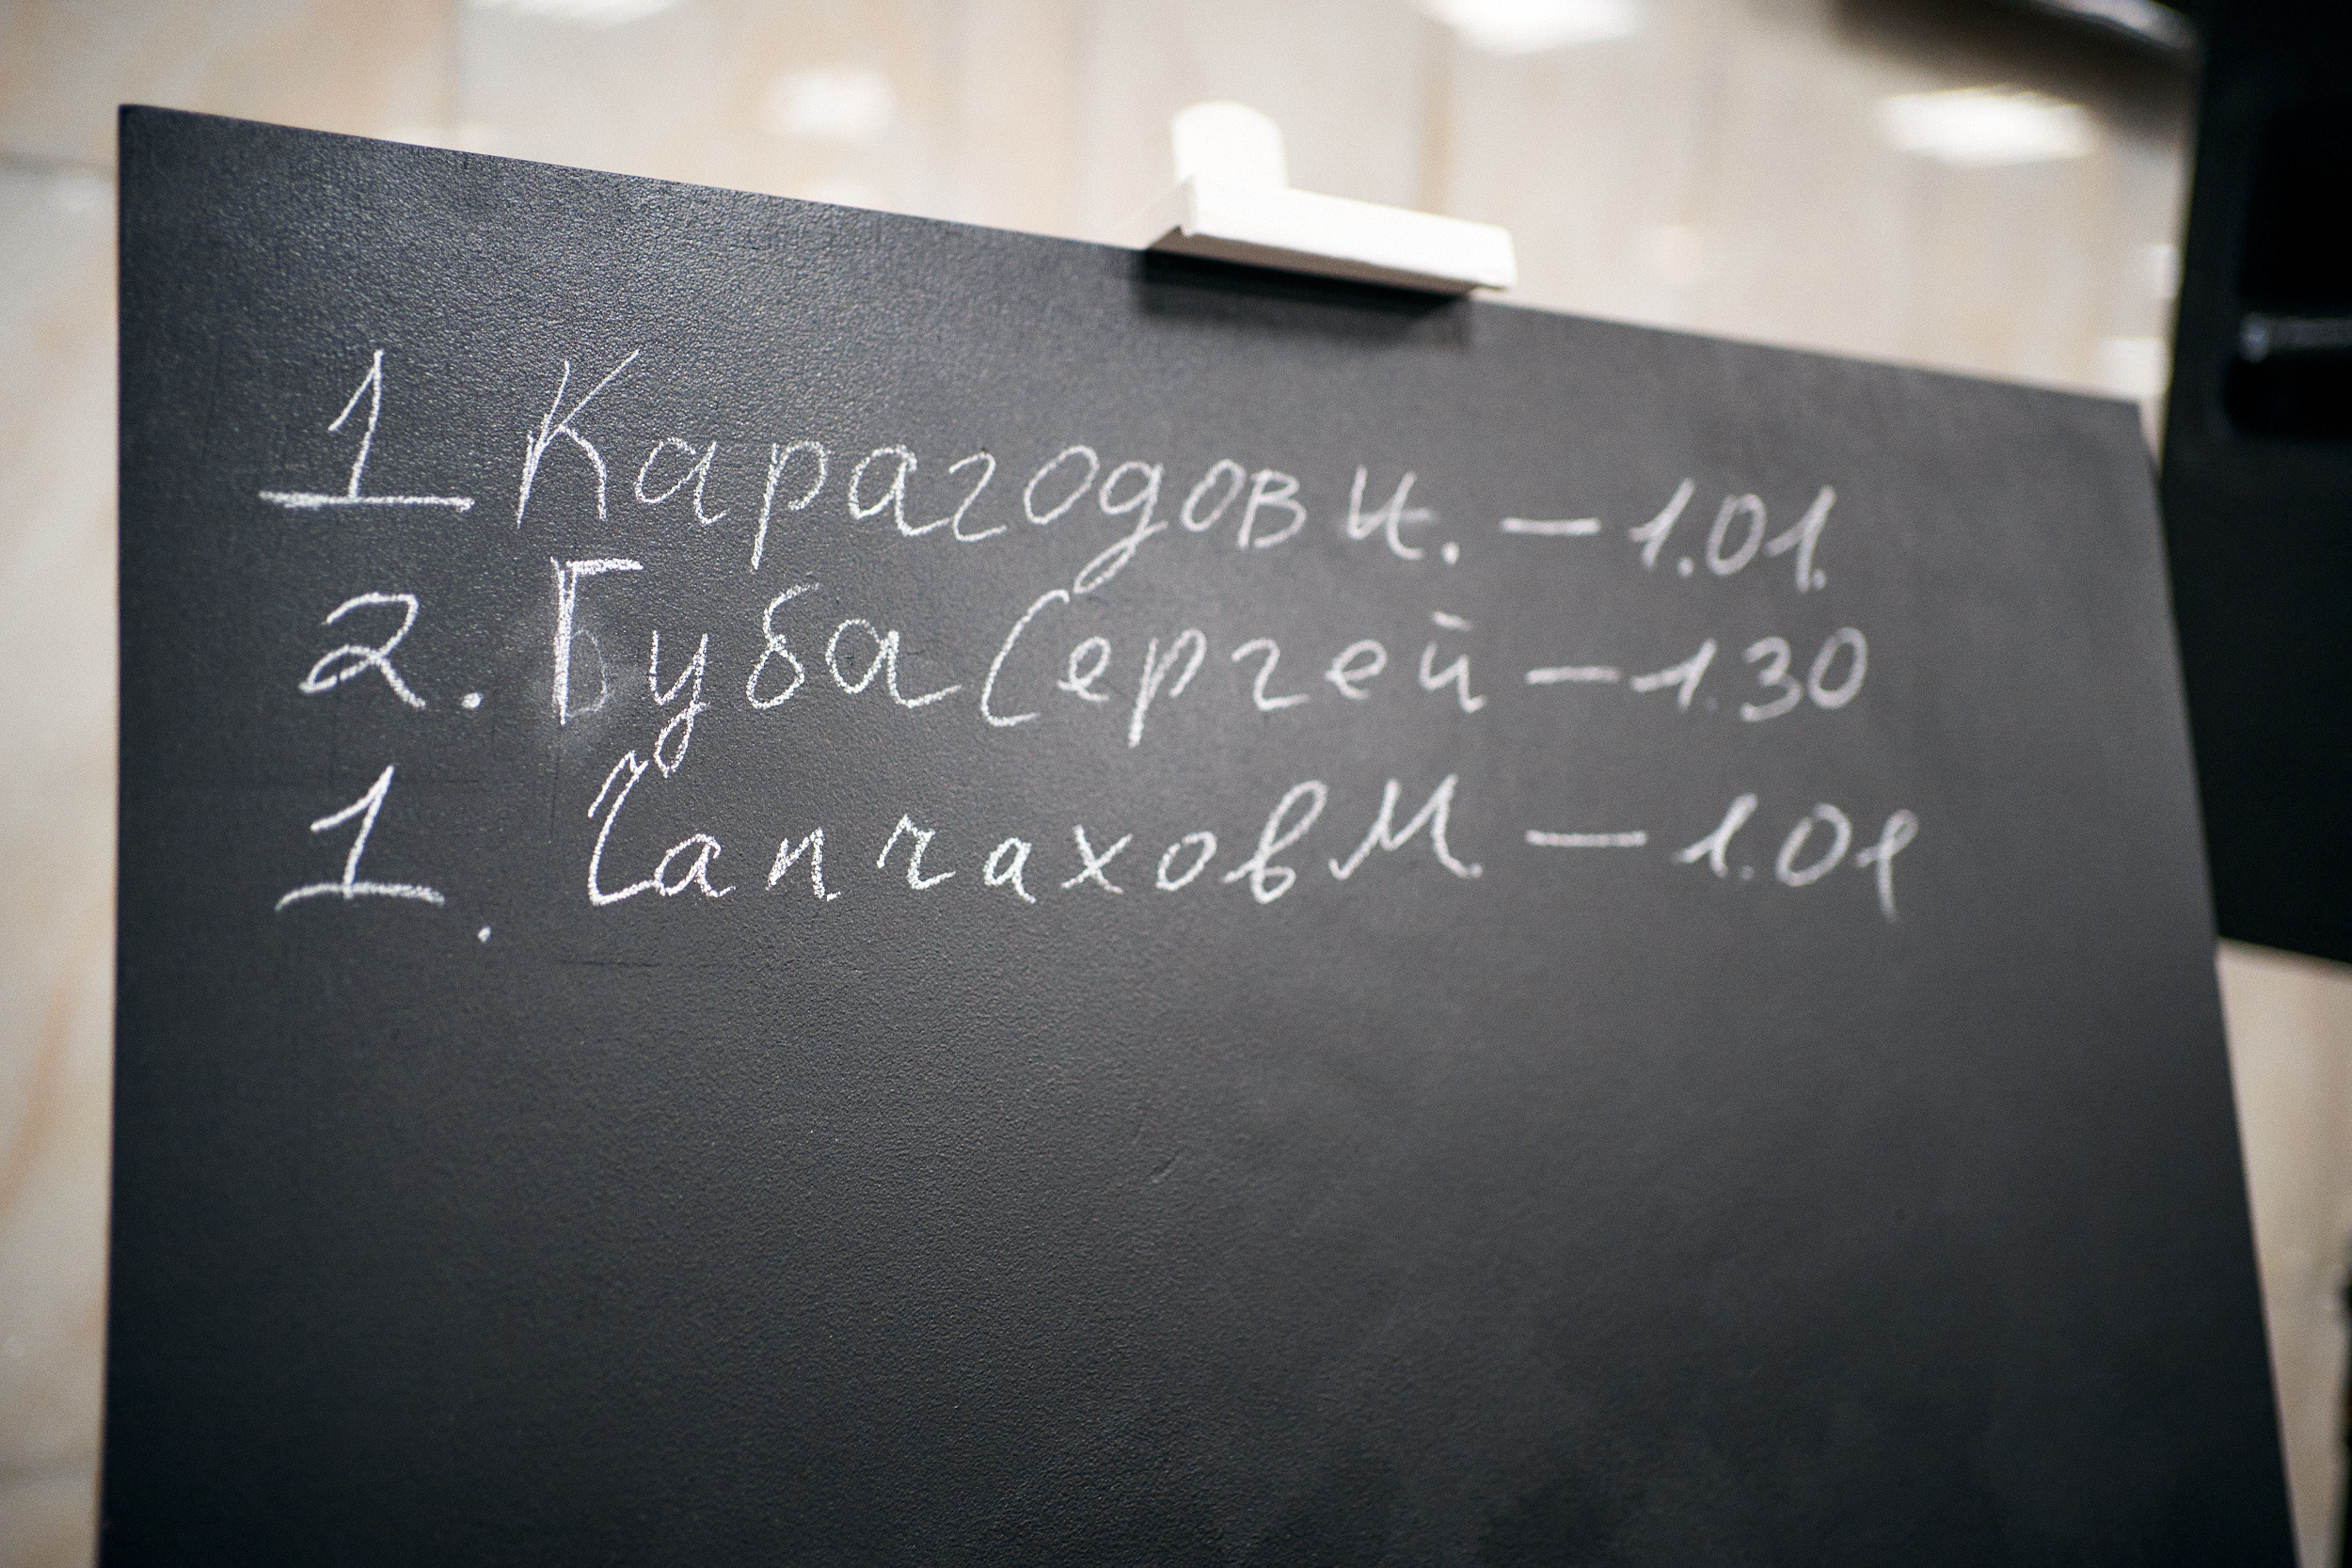 1 Карагодов И. – 1.01.
2. Губа Сергей – 1.30
1. Чапчахов М. – 1.01